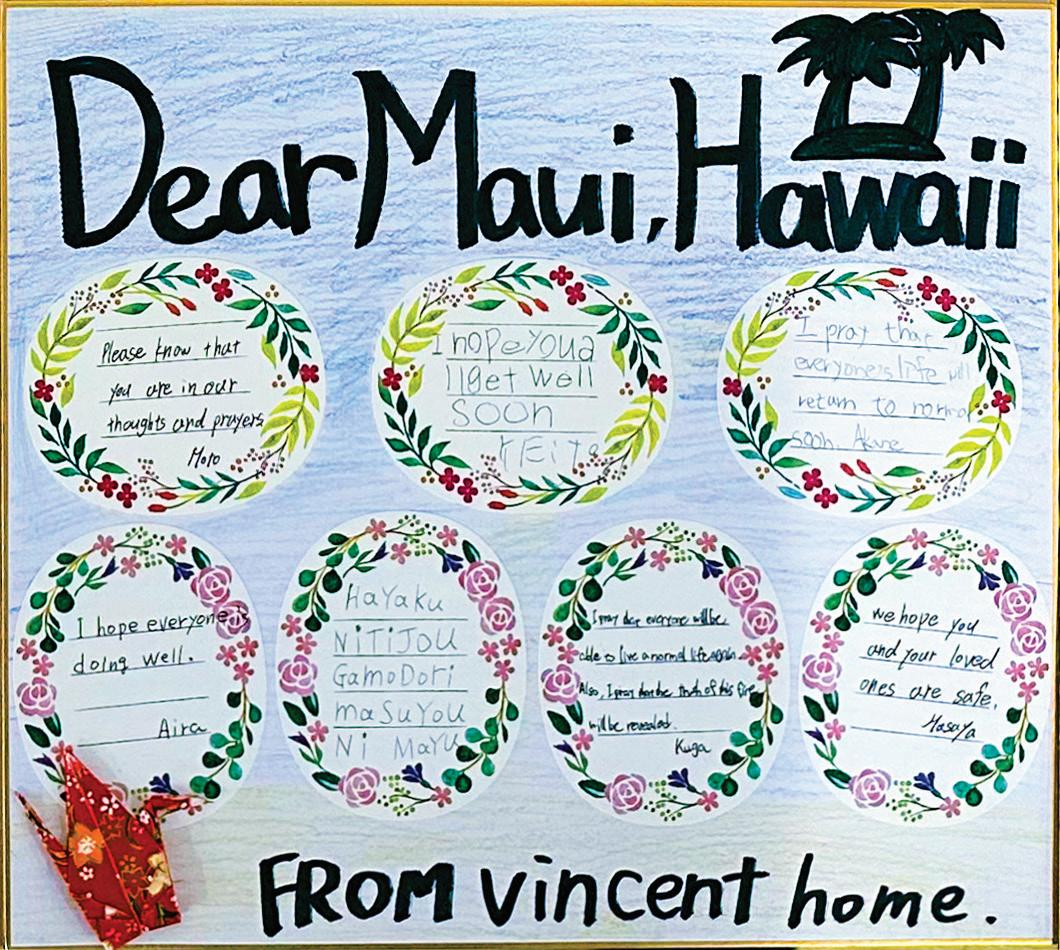 Dear Maui, Hawaii
Please know that
you are in our
thoughts and prayers
Moto
I hope you a
ll get well
soon
KEiTa
I pray that
everyone's life will
return to normal
soon. Akane
I hope everyone is
doing well.
Aira
HaYaKu
NiTiJOU
GamoDori
maSuYOU
Ni MaYU
I pray that everyone will be
able to live a normal life again
Also, I pray that the truth of this fire
will be revealed.
Kuga
we hope you
and your loved
ones are safe.
Masaya
FROM vincent home.